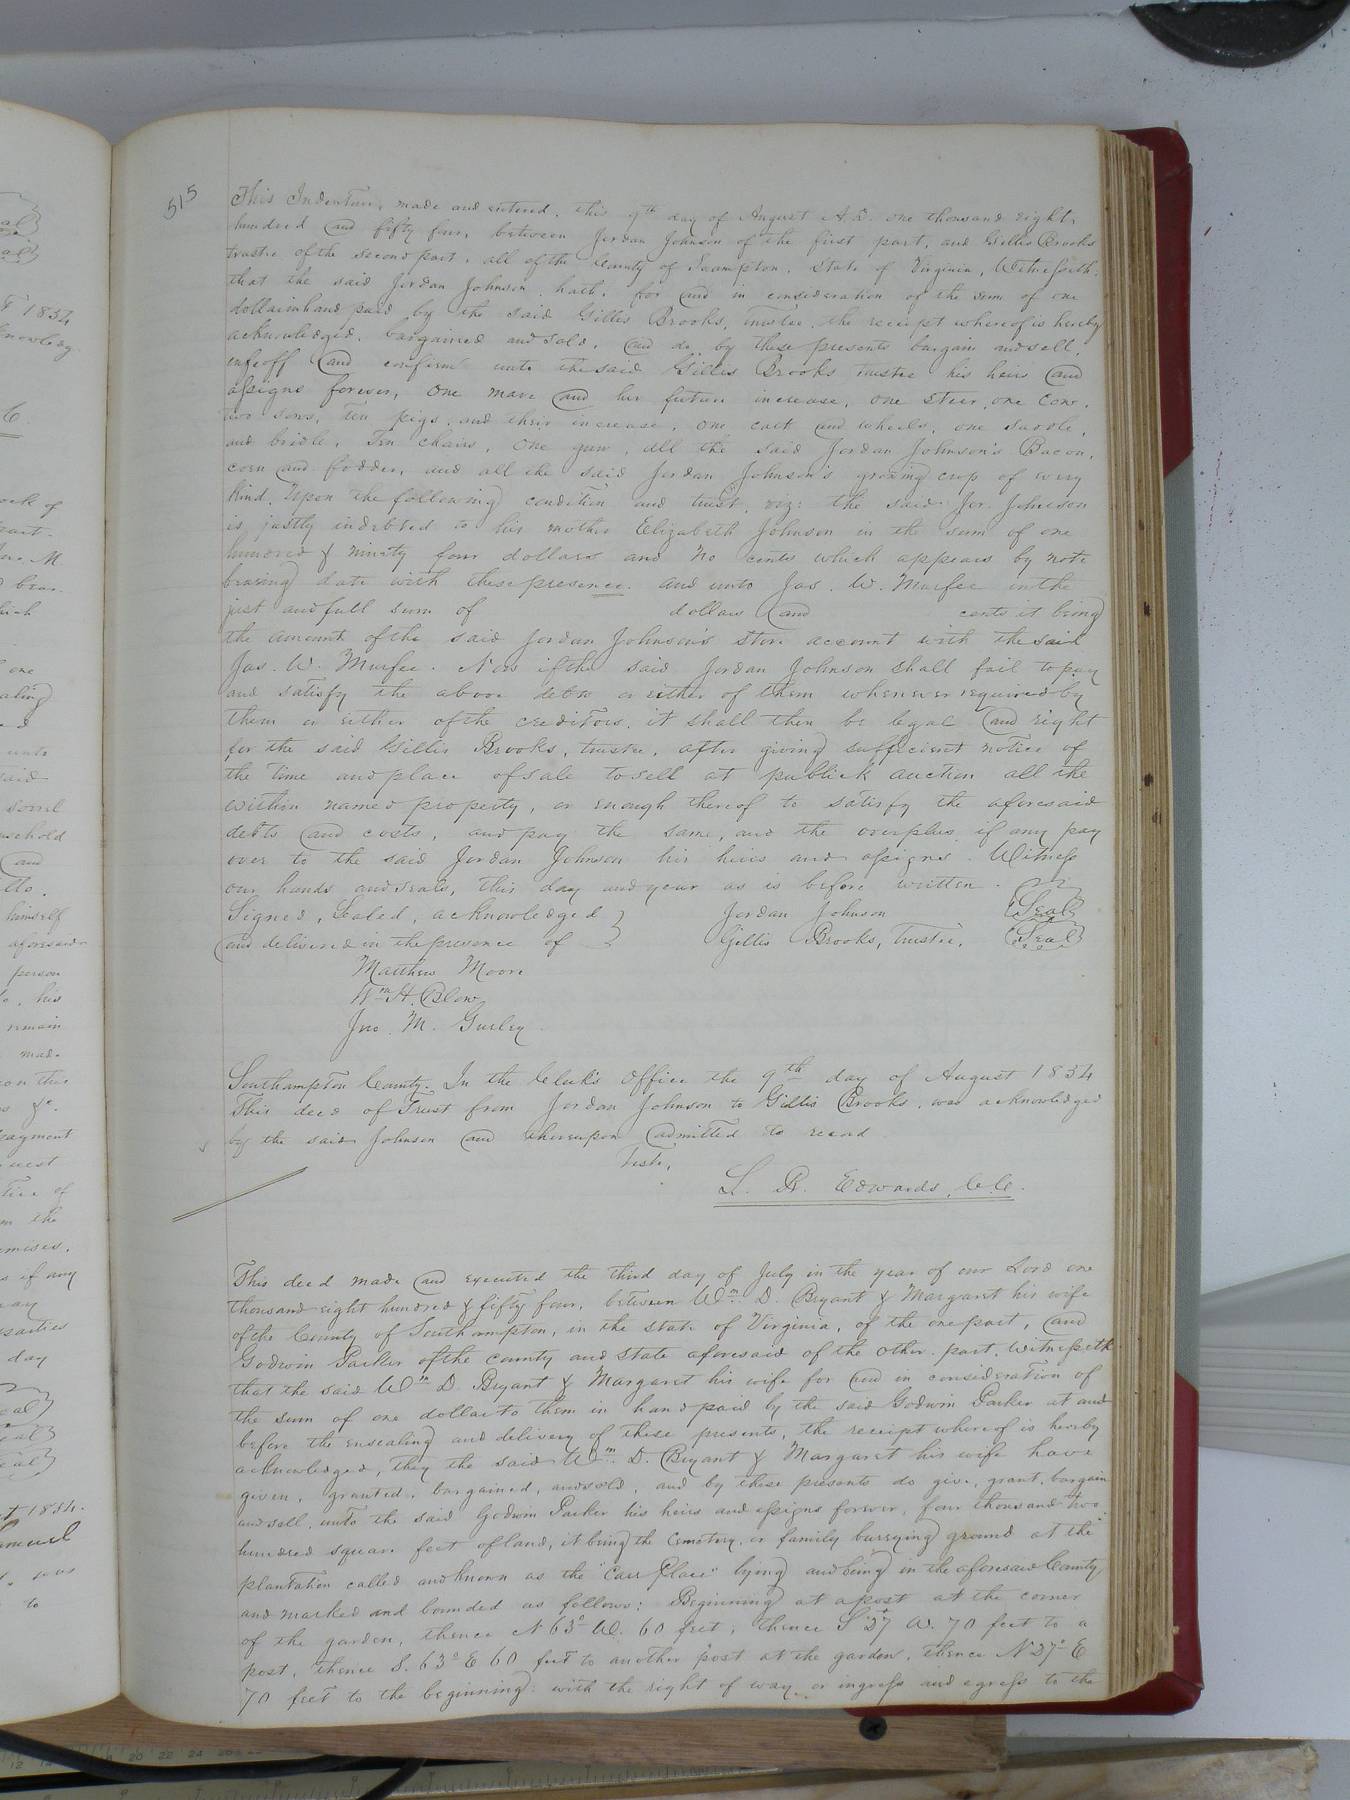 515
This Indenture, made and entered, this 9th day of August A.D. one thousand eight
hundred and fifty four, between Jordan Johnson of the first part, and Gillis Brooks
trustee of the second part, all of the County of Southampton, State of Virginia, Witnesseth:
that the said Jordan Johnson hath, for and in consideration of the sum of one
dollar in hand paid by the said Gillis Brooks, trustee, the receipt whereof is hereby
acknowledged, bargained and sold, and do by these presents bargain and sell,
enfeoff and confirm unto the said Gillis Brooks trustee his heirs and
assigns forever, one mare and her future increase, one steer, one cow,
two sows, ten pigs, and their increase, one cart and wheels, one saddle,
and bridle, Ten chairs, one gun, all the said Jordan Johnson's Bacon,
corn and fodder, and all the said Jordan Johnson's growing crop of every
kind. Upon the following condition and trust, viz: the said Jor. Johnson
is justly indebted to his mother Elizabeth Johnson in the sum of one
hundred & ninety four dollars and no cents which appears by note
bearing date with these presence. and unto Jas. W. Murfee in the
just and full sum of dollars and cents it being
the amount of the said Jordan Johnson's store account with the said
Jas. W. Murfee. Now if the said Jordan Johnson shall fail to pay
and satisfy the above debts or either of them whenever required by
them or either of the creditors, it shall then be legal and right
for the said Gillis Brooks, trustee, after giving sufficient notice of
the time and place of sale to sell at publick auction all the
within named property, or enough thereof to satisfy the aforesaid
debts and costs, and pay the same, and the overplus if any pay
over to the said Jordan Johnson his heirs and assigns. Witness
our hands and seals, this day and year as is before written.
Signed, Sealed, acknowledged } Jordan Johnson (Seal)
and delivered in the presence of } Gillis Brooks, Trustee, (Seal)
Matthew Moore
Wm H. Blow
Jno. M. Gurley
Southampton County. In the Clerk's Office the 9th day of August 1854
This deed of Trust from Jordan Johnson to Gillis Brooks, was acknowledged
by the said Johnson and thereupon admitted to record
Teste,
L. R. Edwards, C.C.
This deed made and executed the third day of July in the year of our Lord one
thousand eight hundred & fifty four, between Wm. D. Bryant & Margaret his wife
of the County of Southampton, in the state of Virginia, of the one part, and
Godwin Parker of the county and state aforesaid of the other part, Witnesseth
that the said Wm D. Bryant & Margaret his wife for and in consideration of
the sum of one dollar to them in hand paid by the said Godwin Parker at and
before the ensealing and delivery of these presents, the receipt whereof is hereby
acknowledged, they the said Wm. D. Bryant & Margaret his wife have
given, granted, bargained, and sold, and by these presents do give, grant, bargain
and sell, unto the said Godwin Parker his heirs and assigns forever, four thousand two
hundred square feet of land, it being the cemetery or family burrying ground at the
plantation called and known as the "Carr Place" lying and being in the aforesaid County,
and marked and bounded as follows: Beginning at a post at the corner
of the garden, thence N 63° W. 60 feet, thence S 27 W. 70 feet to a
post, thence S. 63° E 60 feet to another post at the garden, thence N 27° E
70 feet to the beginning: with the right of way or ingress and egress to the